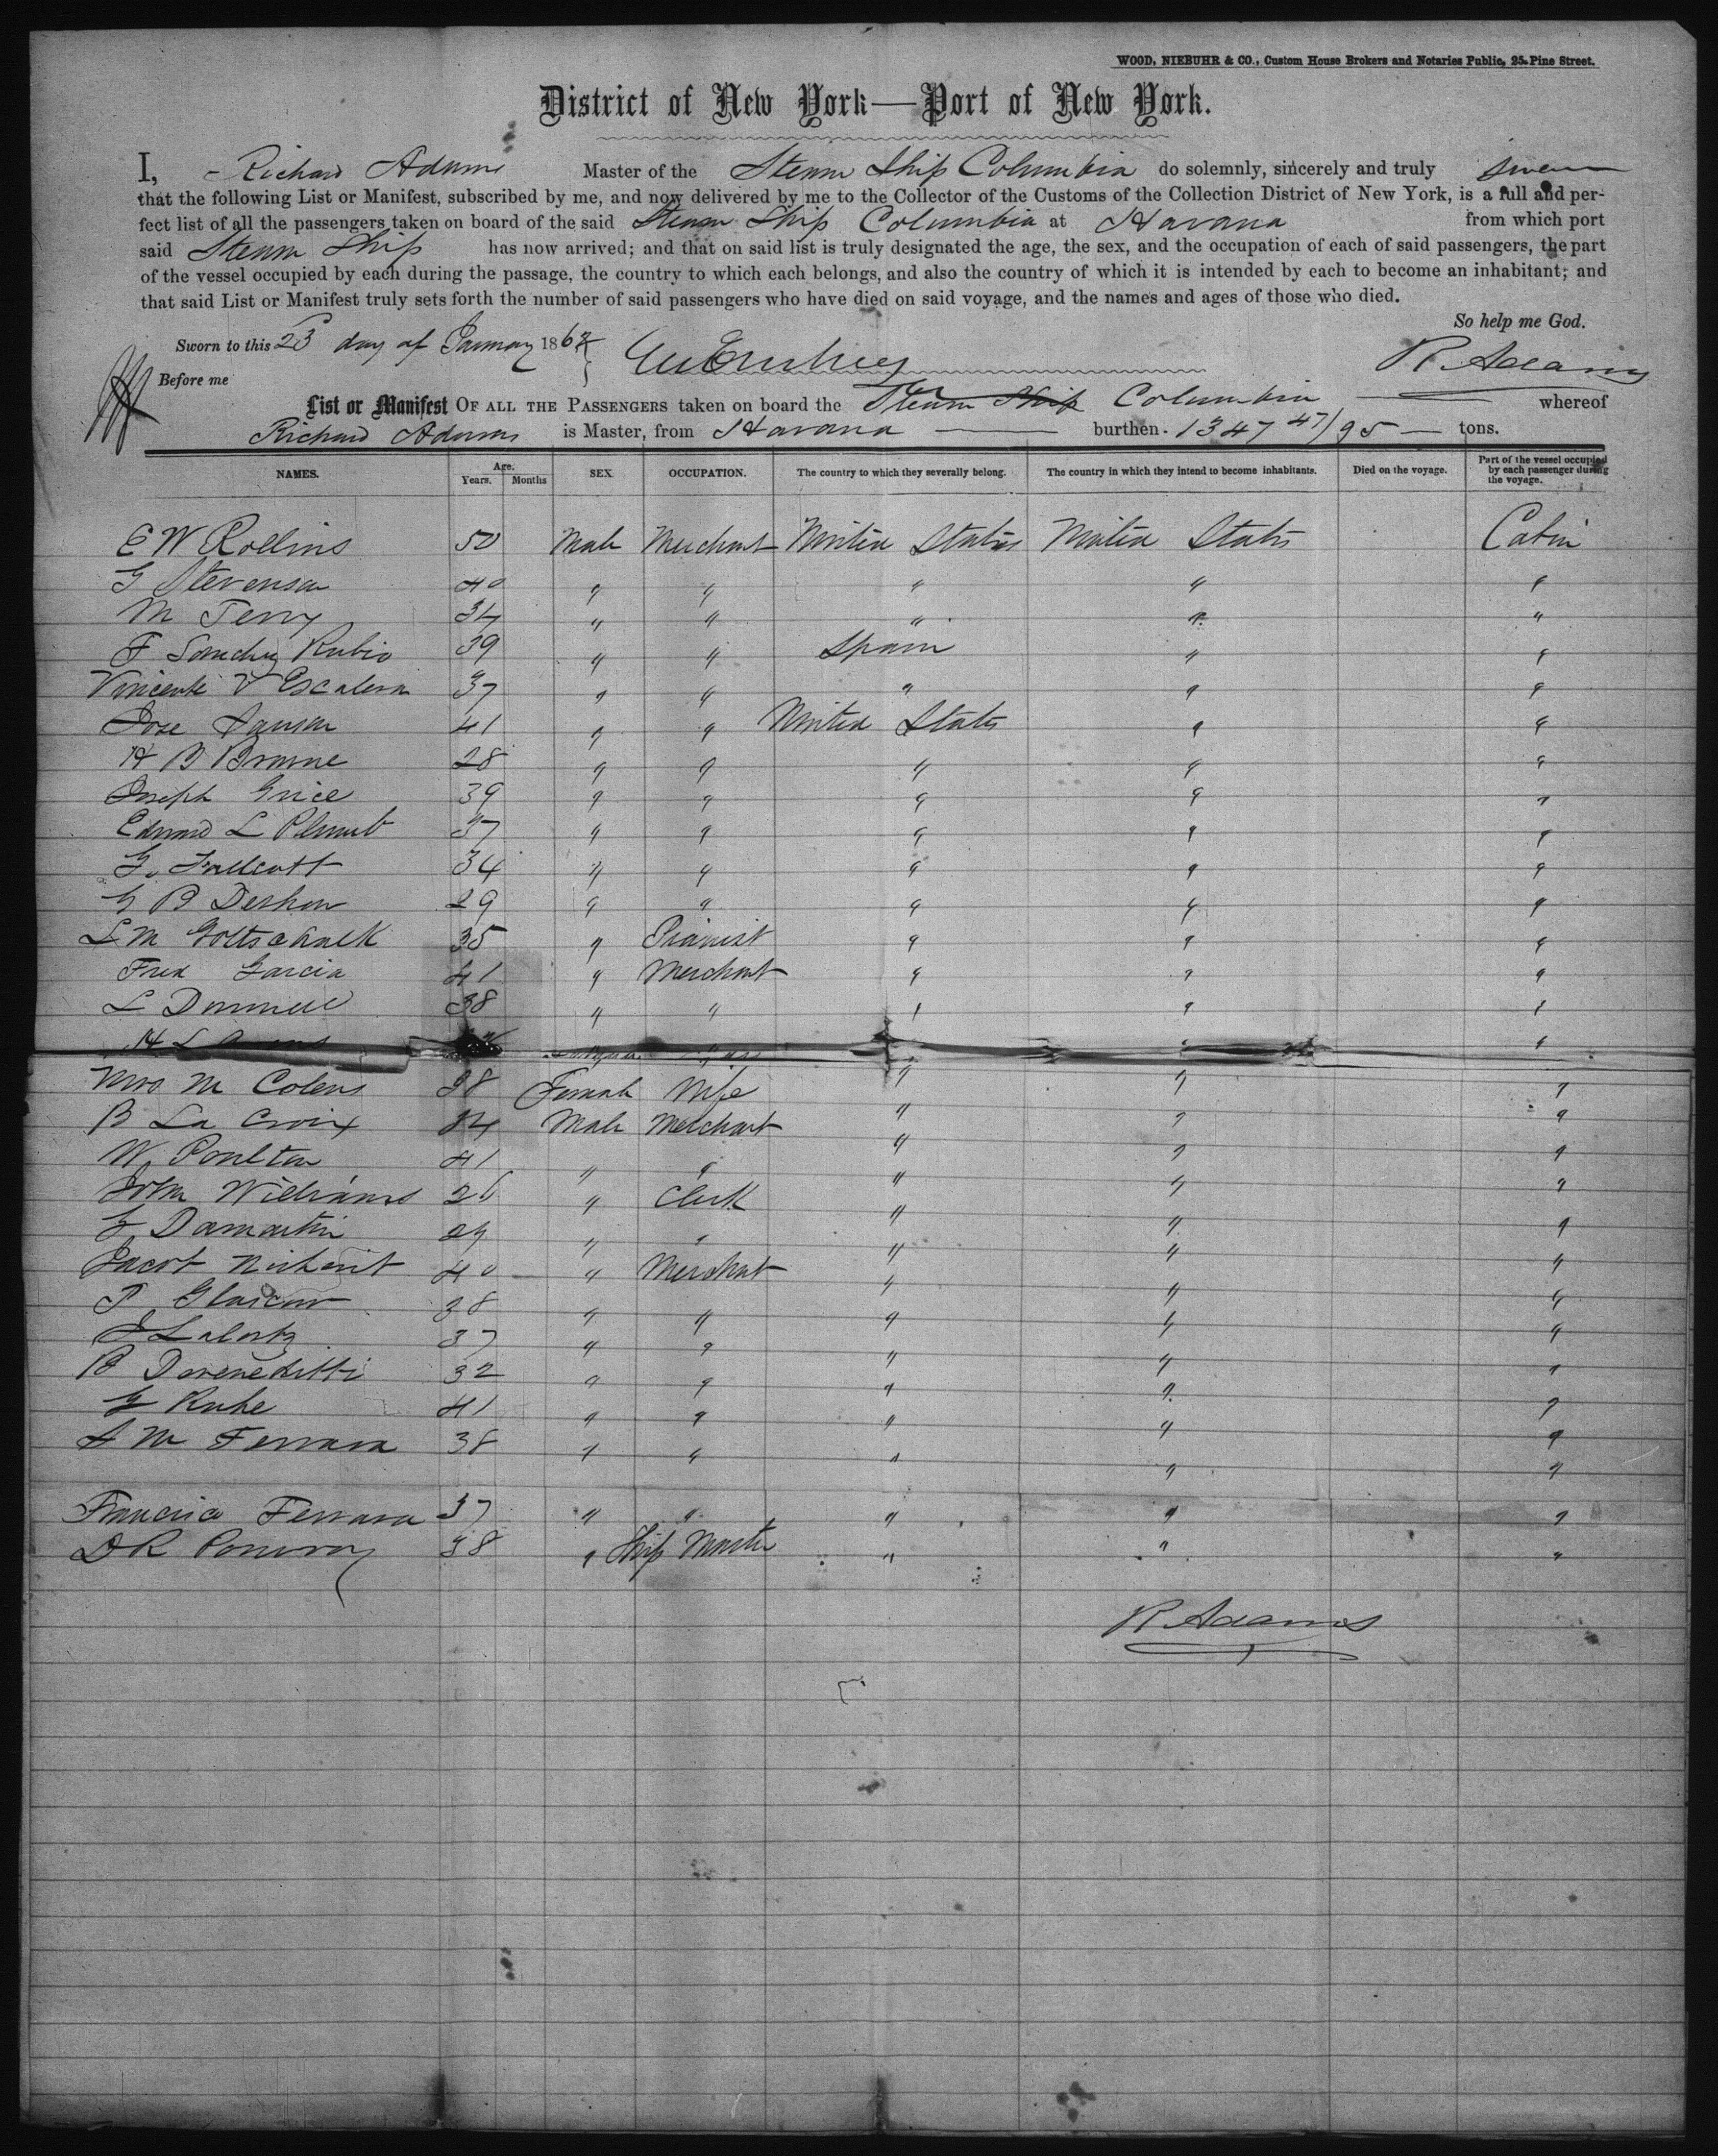 WOOD, NIEBUHR & CO., Custom House Brokers and Notaries Public, 25 Pine Street.
District of New York—Port of New York.
I, Richard Adams Master of the Steam Ship Columbia do solemnly, sincerely and truly swear
that the following List or Manifest, subscribed by me, and now delivered by me to the Collector of the Customs of the Collection District of New York, is a full and per-
fect list of all the passengers taken on board of the said Steam Ship Columbia at Havana from which port
said Steam Ship has now arrived; and that on said list is truly designated the age, the sex, and the occupation of each of said passengers, the part
of the vessel occupied by each during the passage, the country to which each belongs, and also the country of which it is intended by each to become an inhabitant; and
that said List or Manifest truly sets forth the number of said passengers who have died on said voyage, and the names and ages of those who died.
So help me God.
Sworn to this 23 day of January 186 R Adams
Before me
List or Manifest OF ALL THE PASSENGERS taken on board the Steam Ship Columbia whereof
Richard Adams is Master, from Havana burthen 1347 47/95 tons.
NAMES. Age. Years. Months SEX. OCCUPATION. The country to which they severally belong. The country in which they intend to become inhabitants. Died on the voyage. Part of the vessel occupied by each passenger during the voyage.
E W Rollins 50 Male Merchant United States United States Cabin
G Stevenson 40 " " " " "
M Terry 34 " " " " "
F Sanchez Rubio 39 " " Spain " "
Vincente V Escalera 37 " " " " "
Jose 41 " " United States " "
H B Browne 28 " " " " "
Joseph Grice 39 " " " " "
Edward L Plumb 37 " " " " "
G. 34 " " " " "
G B Deshon 29 " " " " "
L M Gottschalk 35 " Pianist " " "
Fred Garcia 41 " Merchant " " "
L 38 " " " " "
H L
Mrs M Colens 38 Female Wife " " "
B La Croix 34 Male Merchant " " "
W Poulton 41 " " " " "
John Williams 26 " Clerk " " "
G Damartin 29 " " " " "
Jacob 40 " Merchant " " "
P Glascow 38 " " " " "
J 37 " " " " "
B 32 " " " " "
G Ruhe 41 " " " " "
A M Ferrara 38 " " " " "
Francisca Ferrara 37 " " " " "
D R 38 " Ship Master " " "
R Adams